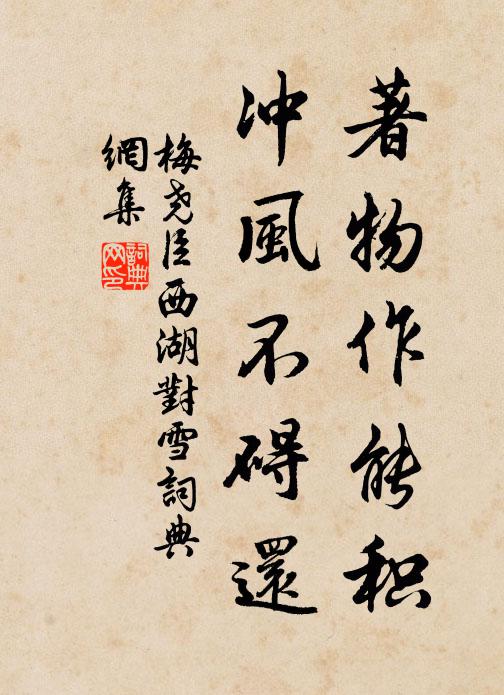 著物作能积
冲風不碍還
梅尧臣西湖對雪詞典
網集
詞典
网印